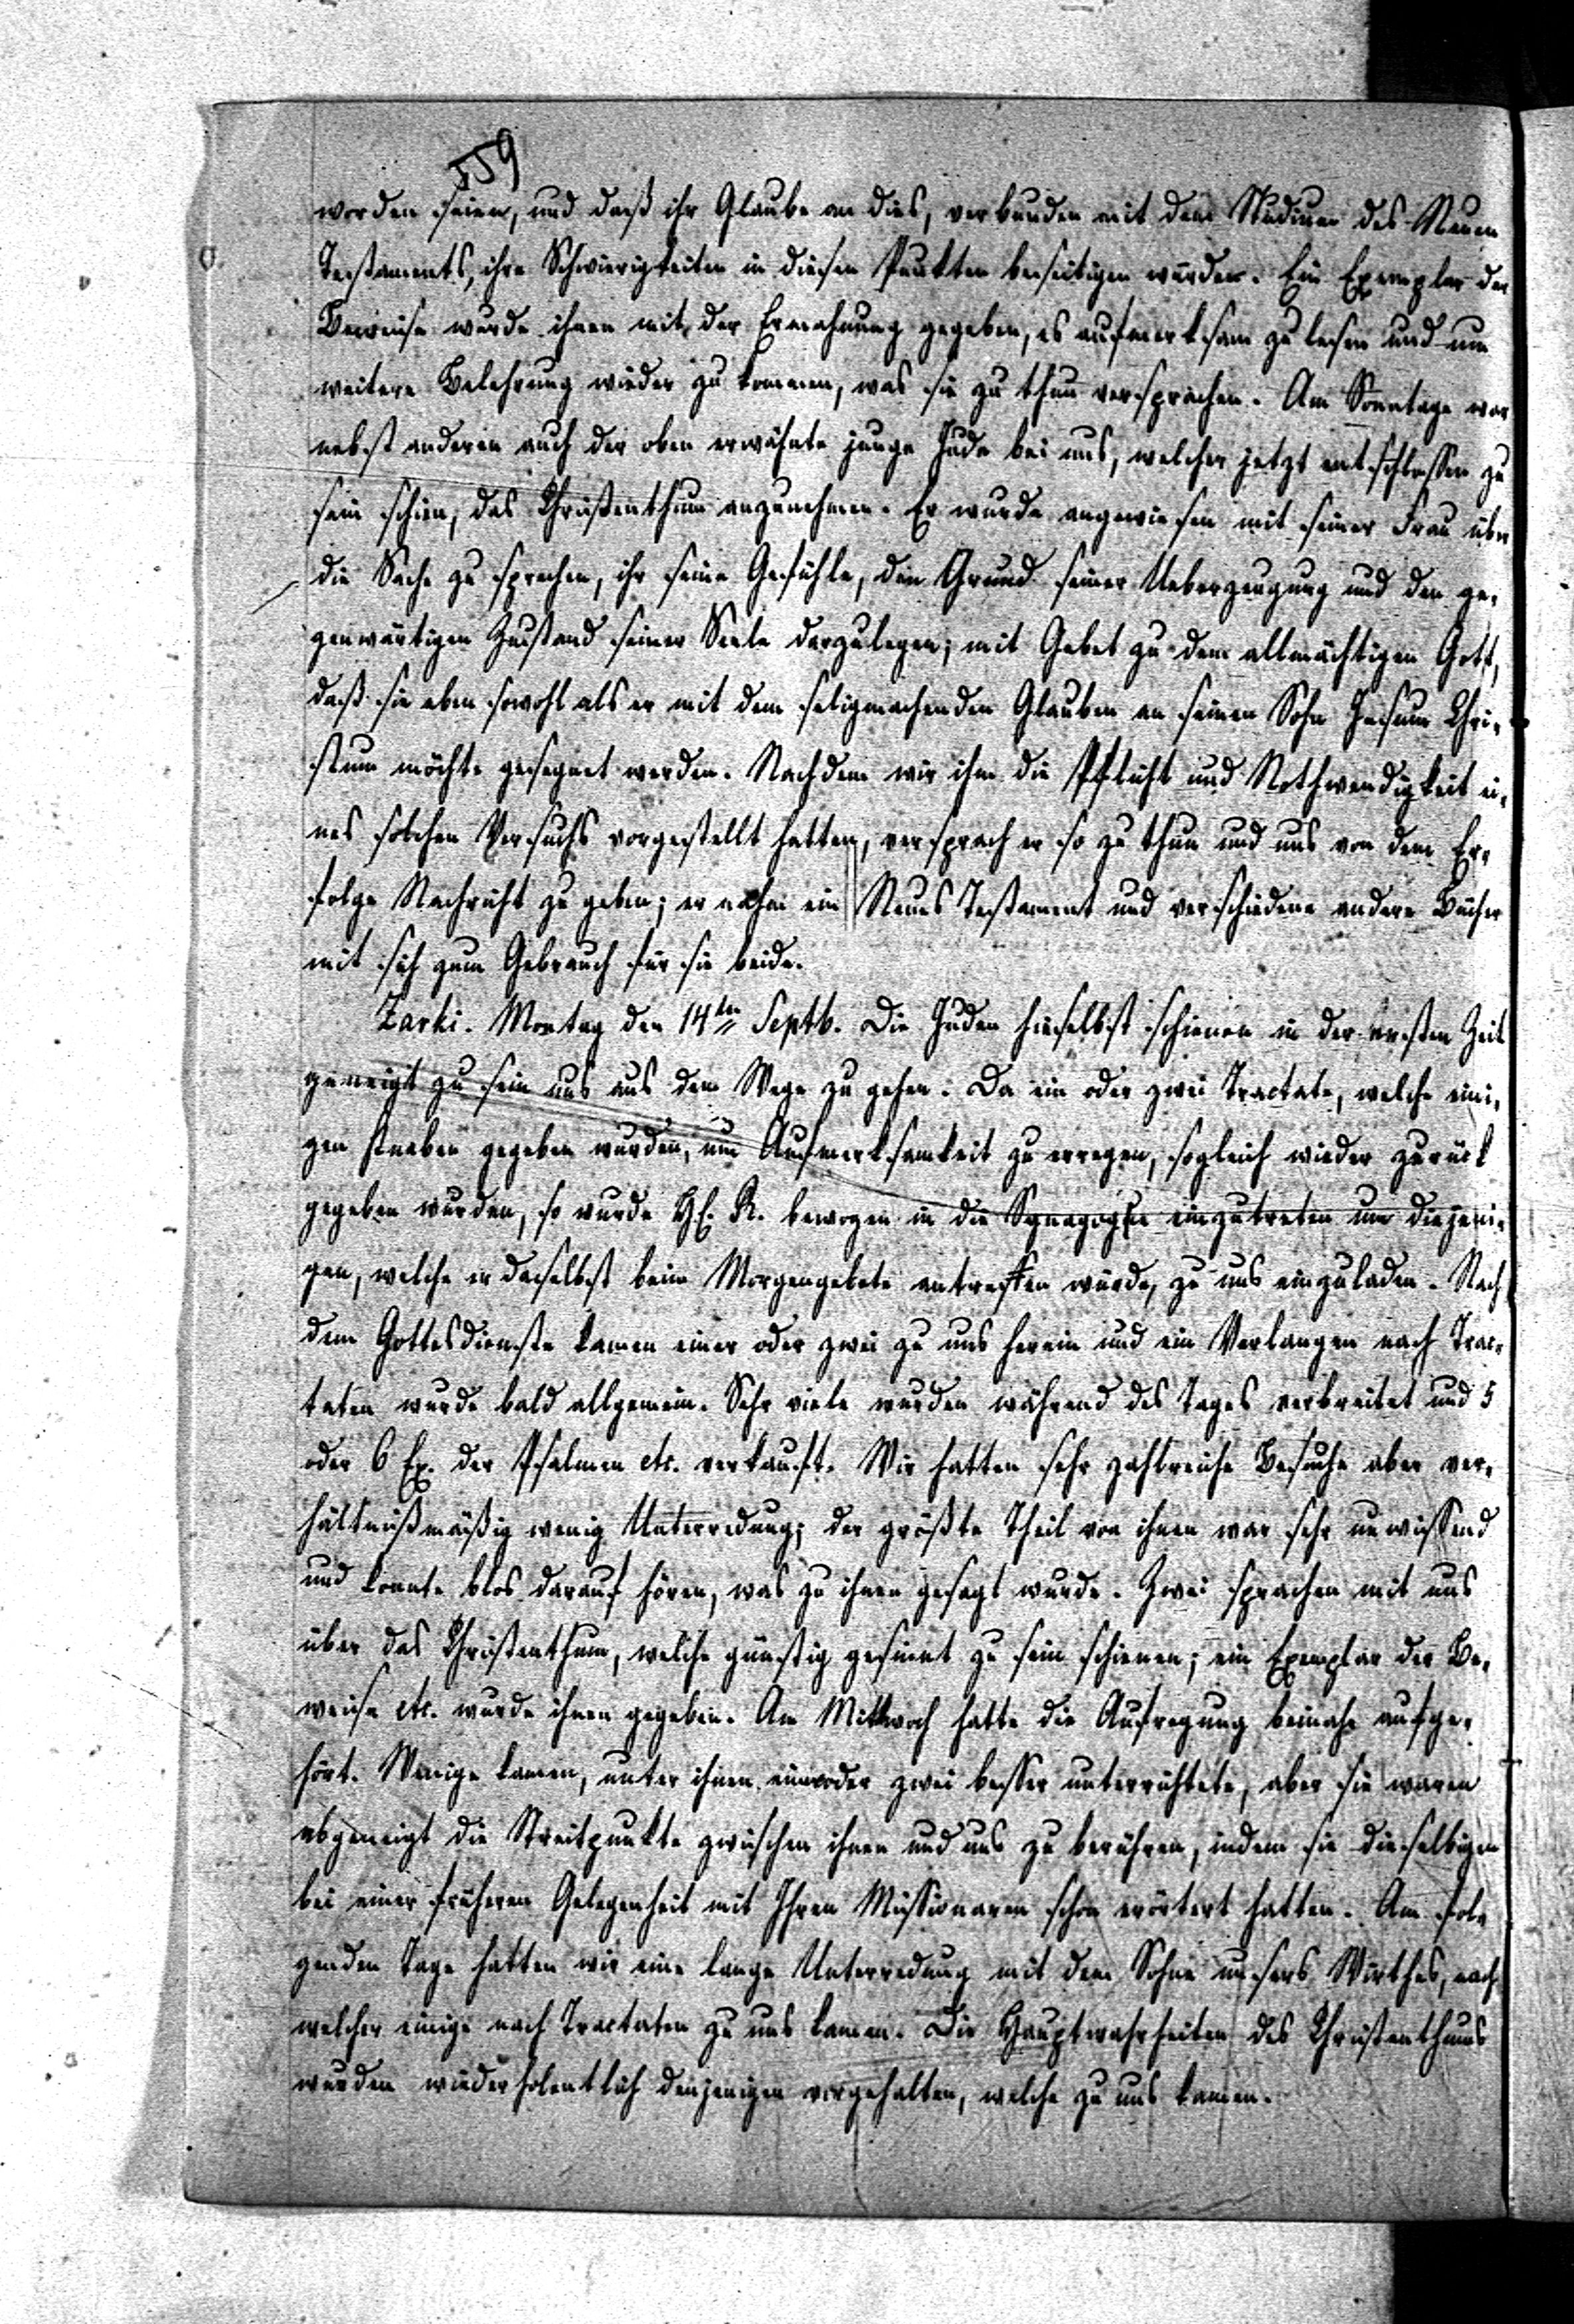 559
worden seien, und daß ihr Glaube an dies, verbunden mit dem Studium des Neuen
Testaments, ihre Schwierigkeiten in diesen Punkten beseitigen würden. Ein Exemplar der
Beweise wurde ihnen mit der Ermahnung gegeben, es aufmerksam zu lesen und um
weitere Belehrung wieder zu kommen, was sie zu thun versprachen. Am Sonntage war
nebst anderen auch der oben erwähnte junge Jude bei uns, welcher jetzt entschlossen zu
sein schien, das Christenthum anzunehmen. Er wurde angewiesen mit seiner Frau über
die Sache zu sprechen, ihr seine Gefühle, den Grund seiner Ueberzeugung und den ge-
genwärtigen Zustand seiner Seele darzulegen; mit Gebet zu dem allmächtigen Gott,
daß sie eben sowohl als er mit dem seligmachenden Glauben an seinen Sohn Jesum Chri-
stum möchte gesegnet werden. Nachdem wir ihm die Pflicht und Nothwendigkeit ei-
nes solchen Versuchs vorgestellt hatten, versprach er so zu thun und uns von dem Er-
folge Nachricht zu geben; er nahm ein Neues Testament und verschiedene andere Bücher
mit sich zum Gebrauch für sie beide.
Zarki. Montag den 14ten Septb. Die Juden hieselbst schienen in der ersten Zeit
geneigt zu sein uns aus dem Wege zu gehen. Da ein oder zwei Tractate, welche eini-
gen Knaben gegeben wurden, um Aufmerksamkeit zu erregen, sogleich wieder zurück
gegeben wurden, so wurde H. R. bewogen in die Synagoge einzutreten um diejeni-
gen, welche er daselbst beim Morgengebete antreffen würde, zu uns einzuladen. Nach
dem Gottesdienste kamen einer oder zwei zu uns herein und ein Verlangen nach Trac-
taten wurde bald allgemein. Sehr viele wurden während des Tages verbreitet und 5
oder 6 Ex. der Psalmen etc. verkauft. Wir hatten sehr zahlreiche Besuche aber ver-
hältnißmäßig wenig Unterredung; der größte Theil von ihnen war sehr unwissend
und konnte blos darauf hören, was zu ihnen gesagt wurde. Zwei sprachen mit uns
über das Christenthum, welche günstig gesinnt zu sein schienen; ein Exemplar der Be-
weise etc. wurde ihnen gegeben. Am Mittwoch hatte die Aufregung beinahe aufge-
hört. Wenige kamen, unter ihnen ein oder zwei besser unterrichtete, aber sie waren
abgeneigt die Streitpunkte zwischen ihnen und uns zu berühren, indem sie dieselbigen
bei einer früheren Gelegenheit mit Ihren Missionaren schon erörtert hatten. Am fol-
genden Tage hatten wir eine lange Unterredung mit dem Sohne unsers Wirthes, nach
welcher einige nach Tractaten zu uns kamen. Die Hauptwahrheiten des Christenthums
wurden wiederholentlich denjenigen vorgehalten, welche zu uns kamen.